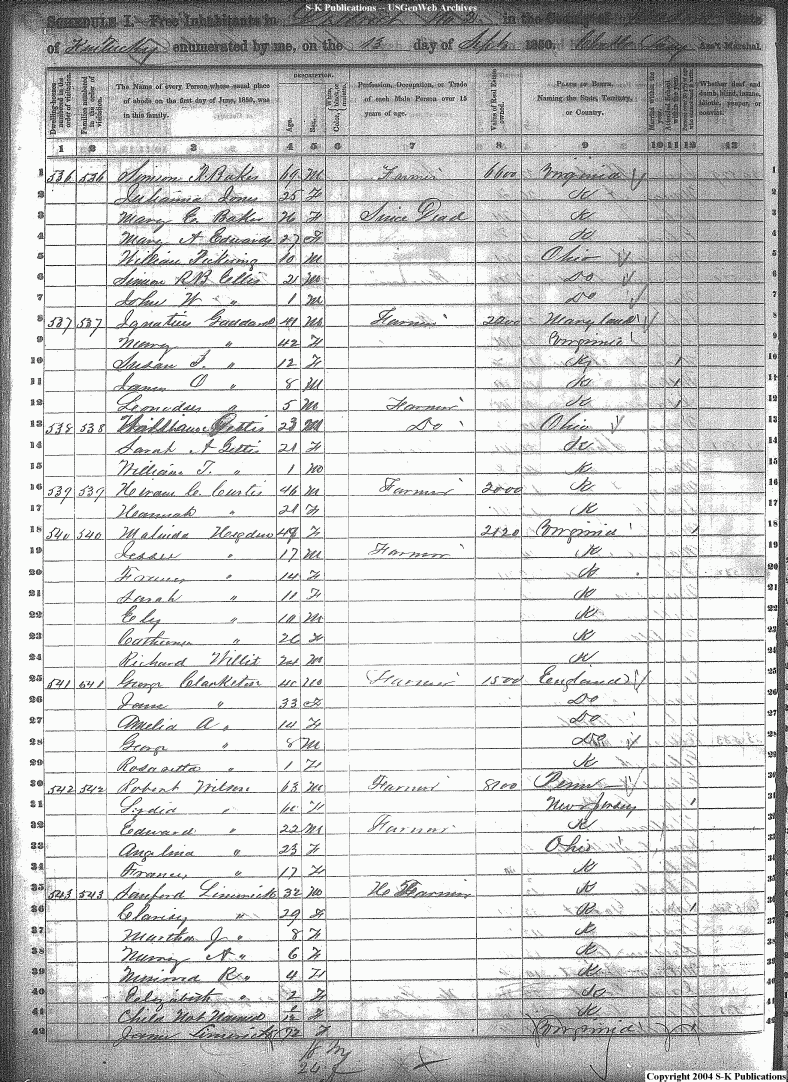 S-K Publications -- USGenWeb Archives
SCHEDULE I.—Free Inhabitants in District No 2 in the County of State
of Kentucky enumerated by me, on the 13 day of Sept 1850. Ass't Marshal.
DESCRIPTION.
Dwelling-houses numbered in the order of visitation. Families numbered in the order of visitation. The Name of every Person whose usual place of abode on the first day of June, 1850, was in this family. Age. Sex. Color, White, black, or mulatto. Profession, Occupation, or Trade of each Male Person over 15 years of age. Value of Real Estate owned. PLACE OF BIRTH. Naming the State, Territory, or Country. Whether deaf and dumb, blind, insane, idiotic, pauper, or convict.
1 2 3 4 5 6 7 8 9 10 11 12 13
1 536 536 Simeon R Baker 69 M Farmer 6600 Virginia 1
2 Julianna Jones 25 F K 2
3 Mary E. Baker 26 F Since Dead K 3
4 Mary A Edwards 27 F K 4
5 William Pickering 10 M Ohio 5
6 Simeon R.B. Ellis 2 M Do 6
7 John W " 1 M Do 7
8 537 537 Ignatius Goddard 41 M Farmer 2200 Maryland 8
9 Mary " 42 F Virginia 9
10 Susan F. " 12 F Ky 1
11 James O " 8 M K 1
12 Leonidas " 5 M Farmer K 1
13 538 538 Gettis 23 M Do Ohio
14 Sarah A Gettis 21 F K
15 William T. " 1 M K
16 539 539 Hiram C. Curtis 46 M Farmer 2000 K
17 Hannah " 21 F K
18 540 540 Malinda Higdon 49 F 2120 Virginia 1
19 Jesse " 17 M Farmer K
20 Frances " 14 F K
21 Sarah " 11 F K
22 Ely " 10 M K
23 Catherine " 26 F K
24 Richard Willit 24 M K
25 541 541 George Clarkston 40 M Farmer 1500 England
26 Jane " 33 F Do
27 Amelia A " 14 F Do
28 George " 8 M Do
29 Rosaretta " 1 F K
30 542 542 Robert Wilson 63 M Farmer 8100 Penn
31 Lydia " 60 F New Jersey 1
32 Edward " 22 M Farmer K
33 Angelina " 23 F Ohio
34 Frances " 17 F K
35 543 543 Sanford Limerick 32 M Farmer K
36 Clarisy " 29 F K 1
37 Martha J " 8 F K
38 Nancy A " 6 F K
39 R " 4 F K
40 Elizabeth " 2 F K
41 Child Not Named 1/12 F K
42 Jane Limerick 72 F Virginia
18 M
24 F
Copyright 2004 S-K Publications